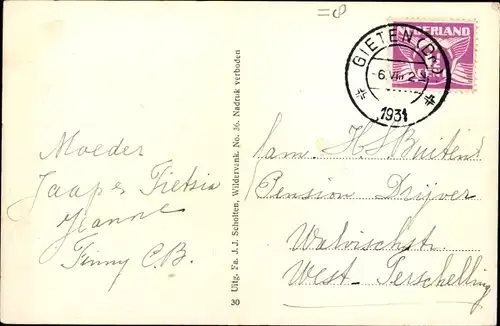 =8
NEDERLAND
GIETEN (Dr.)
-6.VIII 2-
1931
Moeder
Jaap en Tietsia
Jeanne
Finny C.B.
Uitg. Fa. J. J. Scholten, Wildervank. No. 36. Nadruk verboden
30
Fam. H. S. Buiten
Pension Drijver
Walvischstr.
West-Terschelling